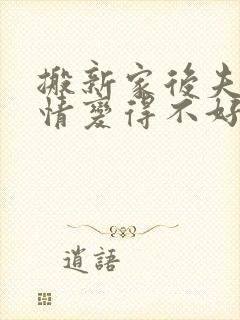 搬新家後夫
情變得不好
逍語